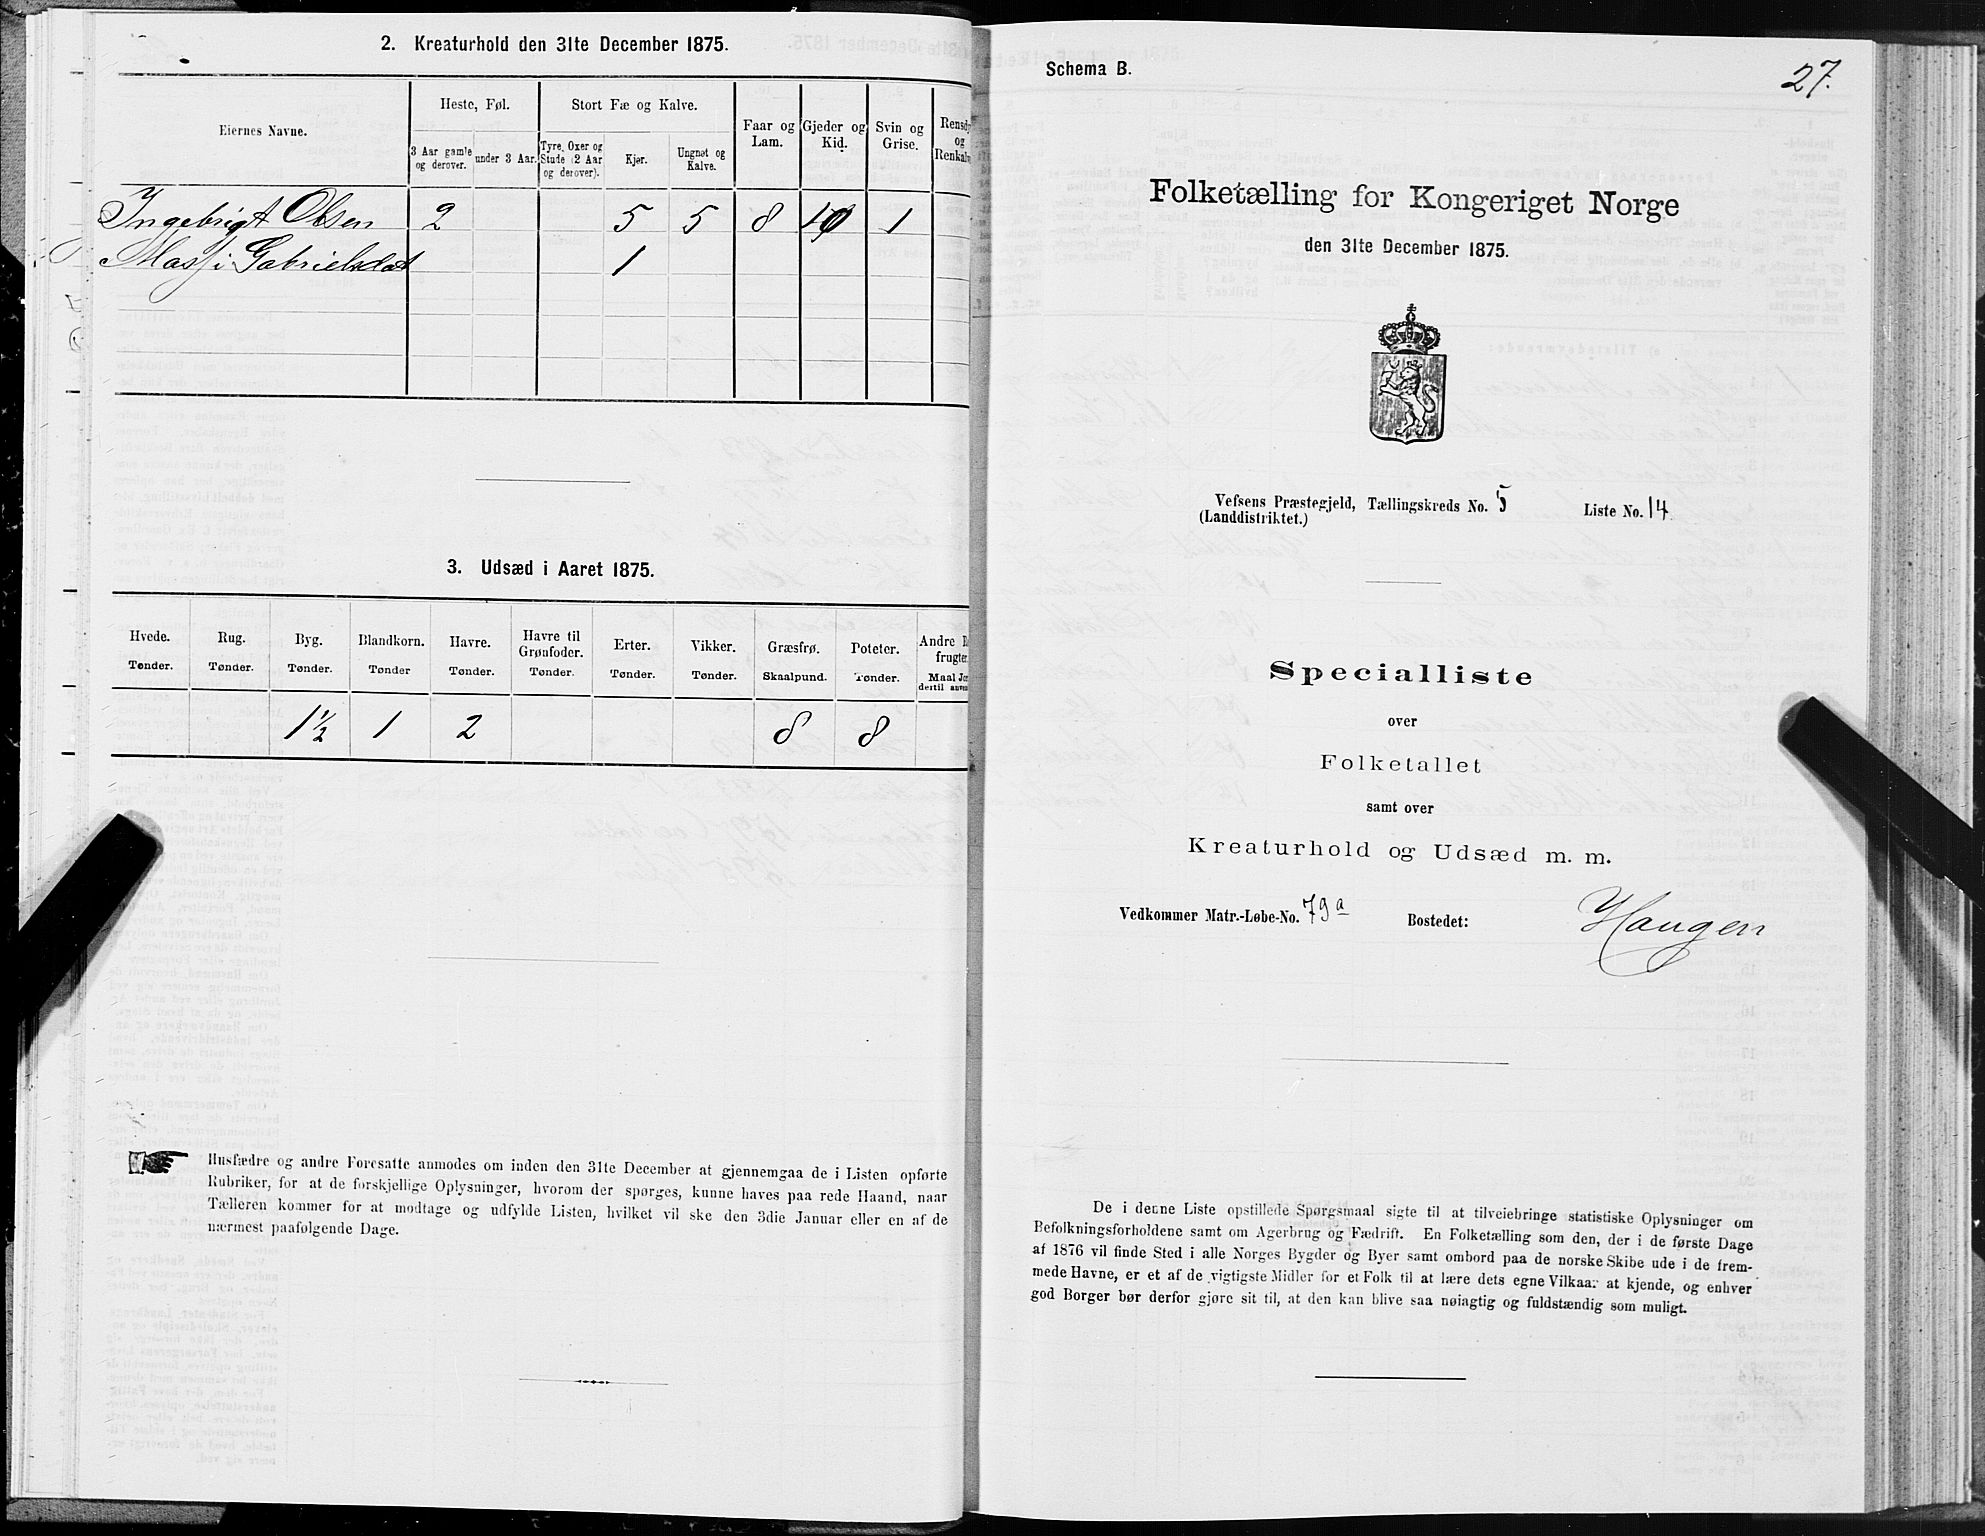 2. Kreaturhold den 31te December 1875.
Eiernes Navne.
Heste, Føl.
Stort Fæ og Kalve.
Faar og Lam.
Gjeder og Kid.
Svin og Grise.
Rensdy
og
Renkalv
3 Aar gamle og derover.
under 3 Aar.
Tyre, Oxer og Stude (2 Aar og derover).
Kjør.
Ungnøt og Kalve.
Ingebrigt Olsen 2 5 5 8 10 1
Gabrielsdat 1
3. Udsæd i Aaret 1875.
Hvede. Rug. Byg. Blandkorn. Havre. Havre til Grønfoder. Erter. Vikker. Græsfrø. Poteter. Andre R
frugter
Tønder. Tønder. Tønder. Tønder Tønder. Tønder. Tønder. Tønder. Skaalpund. Tønder. Maal Jor
dertil anven
1½ 1 2 8 8
Husfædre og andre Foresatte anmodes om inden den 31te December at gjennemgaa de i Listen opførte
Rubriker, for at de forskjellige Oplysninger, hvorom der spørges, kunne haves paa rede Haand, naar
Tælleren kommer for at modtage og udfylde Listen, hvilket vil ske den 3die Januar eller en af de
nærmest paafølgende Dage.
Schema B.
27.
Folketælling for Kongeriget Norge
den 31te December 1875.
Vefsens Præstegjeld, Tællingskreds No. 5 Liste No. 14
(Landdistriktet.)
Specialliste
over
Folketallet
samt over
Kreaturhold og Udsæd m. m.
Vedkommer Matr.-Løbe-No. 79a Bostedet: Haugen
De i denne Liste opstillede Spørgsmaal sigte til at tilveiebringe statistiske Oplysninger om
Befolkningsforholdene samt om Agerbrug og Fædrift. En Folketælling som den, der i de første Dage
af 1876 vil finde Sted i alle Norges Bygder og Byer samt ombord paa de norske Skibe ude i de frem-
mede Havne, er et af de vigtigste Midler for et Folk til at lære dets egne Vilkaar at kjende, og enhver
god Borger bør derfor gjøre sit til, at den kan blive saa nøiagtig og fuldstændig som muligt.